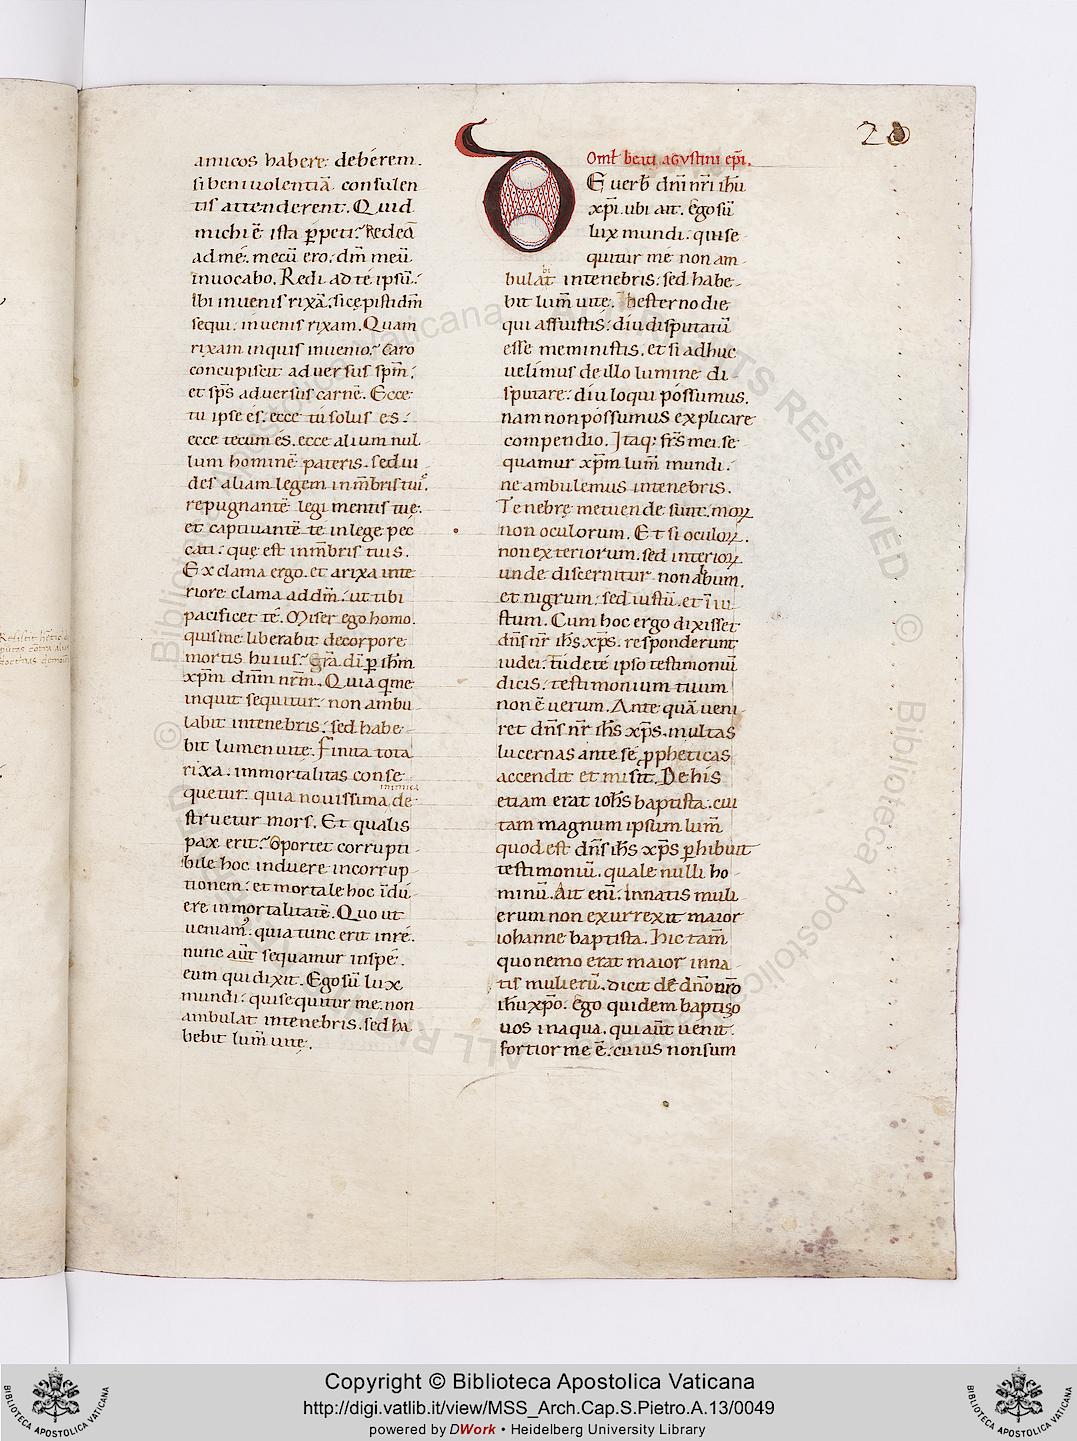 20
amicos habere: deberem.
si beniuolentiā consulen
tis attenderent. Quid
michi ē ista p̄peti? Redeā
ad mé. mecū ero. dm̄ meū
inuocabo. Redi ad té ipsū.
Ibi inuenis rixā. si cępisti dm̄
sequi. inuenis rixam. Quam
rixam inquis inuenio? Caro
concupiscit aduersus spm̄.
et sps̄ aduersus carnē. Ecce
tu ipse és. ecce tú solus es.
ecce tecum és. ecce alium nul
lum hominē pateris. sed ui
des aliam legem in mƀris tuis.
repugnantē legi mentis tuę.
et captiuantē te in lege pec
cati. quę est in mƀris tuis.
Exclama ergo. et a rixa inte
riore clama ad dm̄. ut tibi
pacificet té. Miser ego homo.
quis me liberabit de corpore
mortis huius? Gr̄a di ꝑ ihm̄
xpm̄ dnm̄ nrm̄. Quia q me
inquit sequitur. non ambu
labit in tenebris. sed habe
bit lumen uitę. Finita tota
rixa. immortalitas conse
quetur. quia nouissima inimica de
struetur mors. Et qualis
pax erit? Oportet corrupti
bile hoc induere incorrup
tionem. et mortale hoc idu
ere inmortalitatē. Quo ut
ueniamꝰ. quia tunc erit in ré.
nunc aūt sequamur in spé.
eum qui dixit. Ego sū lux
mundi. qui sequitur me. non
ambulat in tenebris. sed ha
bebit lum̄ uitę.
Omł beati agustini epi.
DE uerƀ dnī nrī ihū
xpi. ubi ait. Ego sū
lux mundi. qui se
quitur mé non am
bulabit in tenebris. sed habe
bit lum̄ uite. Hesterno die
qui affuistis. diu disputatū
esse meministis. et si adhuc
uelimus de illo lumine di
sputare. diu loqui póssumus.
nam non póssumus explicare
compendio. Itaq; frs̄ mei. se
quamur xpm̄ lum̄ mundi.
ne ambulemus in tenebris.
Tenebrę metuende sunt. moꝝ
non oculorum. Et si oculoꝝ.
non exteriorum. sed interioꝝ
unde discernitur non album.
et nigrum. sed iustū. et īiu
stum. Cum hoc ergo dixisset
dn̄s nr̄ ihs̄ xps̄. responderunt
iudei. Tú de té ipso testimoniū
dicis. testimonium tuum
non ē uerum. Ante quā ueni
ret dn̄s nr̄ ihs̄ xps̄. multas
lucernas ante sé ꝓpheticas
accendit et misit. De his
etiam erat ioħs baptista. cui
tam magnum ipsum lum̄
quod est dn̄s ihs̄ xps̄ ꝑhibuit
testimoniū. quale nulli ho
minū. Ait eni. In natis muli
erum non exurrexit maior
iohanne baptista. hic tam̄
quo nemo erat maior in na
tis mulierū. dicit dé dn̄o nr̄o
ihū xp̄o. Ego quidem baptizo
uos in aqua. qui aūt uenit
fortior me ē. cuius non sum
© Biblioteca Apostolica Vaticana ALL RIGHTS RESERVED
© Biblioteca Apostolica Vaticana ALL RIGHTS RESERVED
BIBLIOTECA APOSTOLICA VATICANA
Copyright © Biblioteca Apostolica Vaticana
http://digi.vatlib.it/view/MSS_Arch.Cap.S.Pietro.A.13/0049
powered by DWork • Heidelberg University Library
BIBLIOTECA APOSTOLICA VATICANA